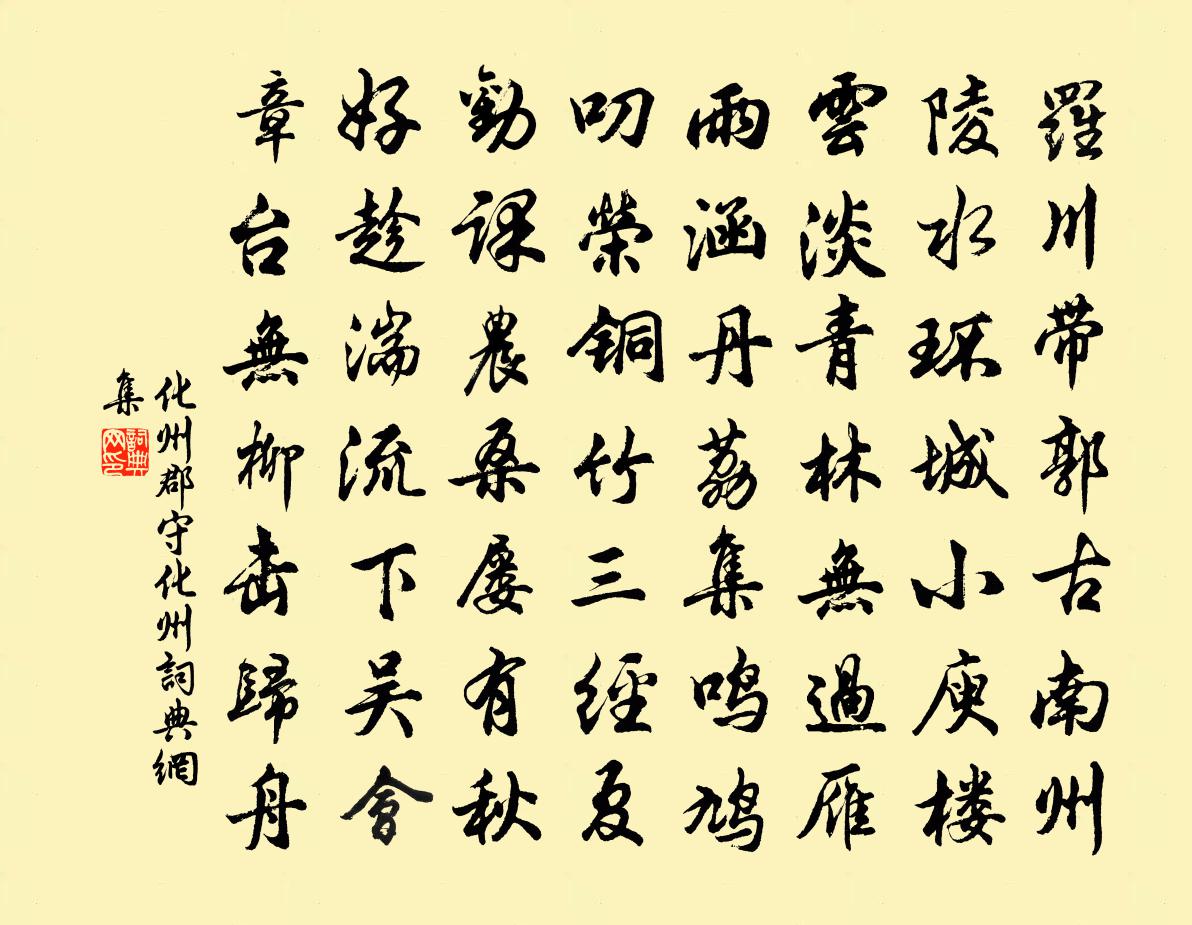 羅川带郭古南州
陵水环城小庾楼
雲淡青林無過雁
雨涵丹荔集鸣鳩
叨榮铜竹三經夏
勸课農桑屡有秋
好趁湍流下吴會
章台無柳击歸舟
化州郡守化州詞典網
集
詞典
网印